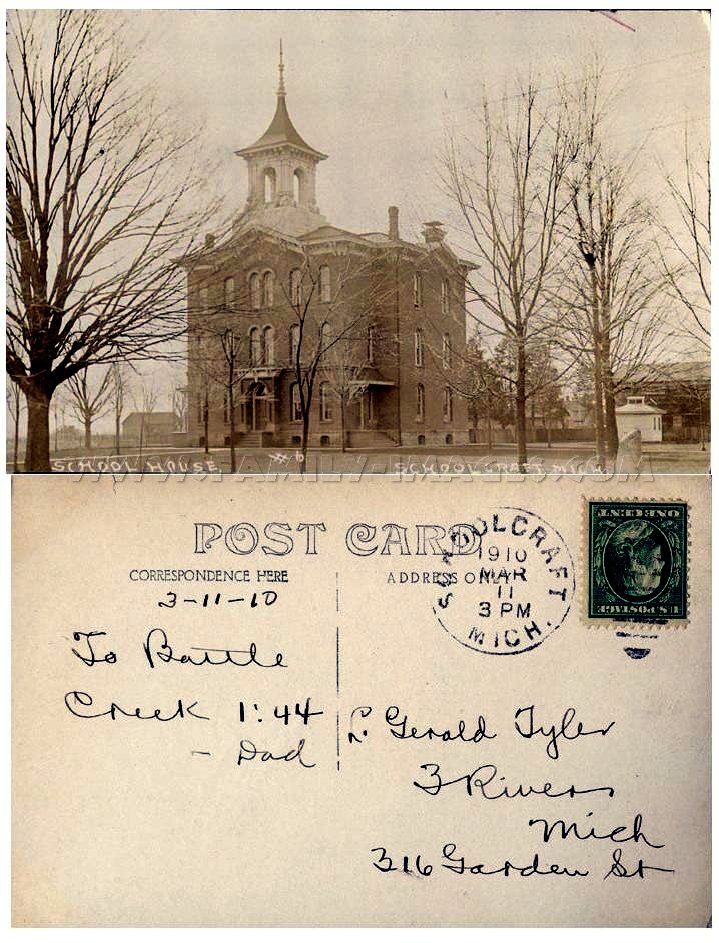 SCHOOL HOUSE #6 SCHOOLCRAFT, MICH.
WWW.FAMILY-IMAGES.COM
POST CARD
CORRESPONDENCE HERE
ADDRESS ONLY
SCHOOLCRAFT
1910
MAR
11
3 PM
MICH.
ONE CENT
U.S. POSTAGE
3-11-10
To Battle
Creek 1:44
- Dad
L. Gerald Tyler
3 Rivers
Mich
316 Garden St